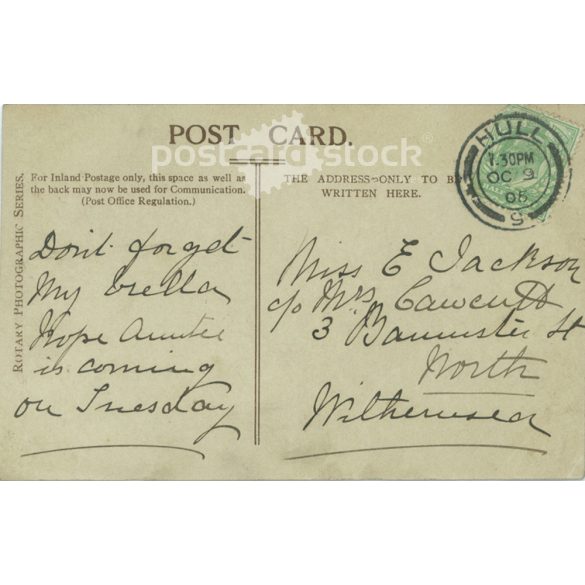 POST CARD.
postcard stock®
ROTARY PHOTOGRAPHIC SERIES.
For Inland Postage only, this space as well as
the back may now be used for Communication.
(Post Office Regulation.)
THE ADDRESS ONLY TO BE
WRITTEN HERE.
HULL
7.30PM
OC 9
05
S
Dont forget
My brella
Hope Auntie
is coming
on Tuesday
Miss E Jackson
c/o Mrs Cawcutt
3 Bannister St
North
Withernsea